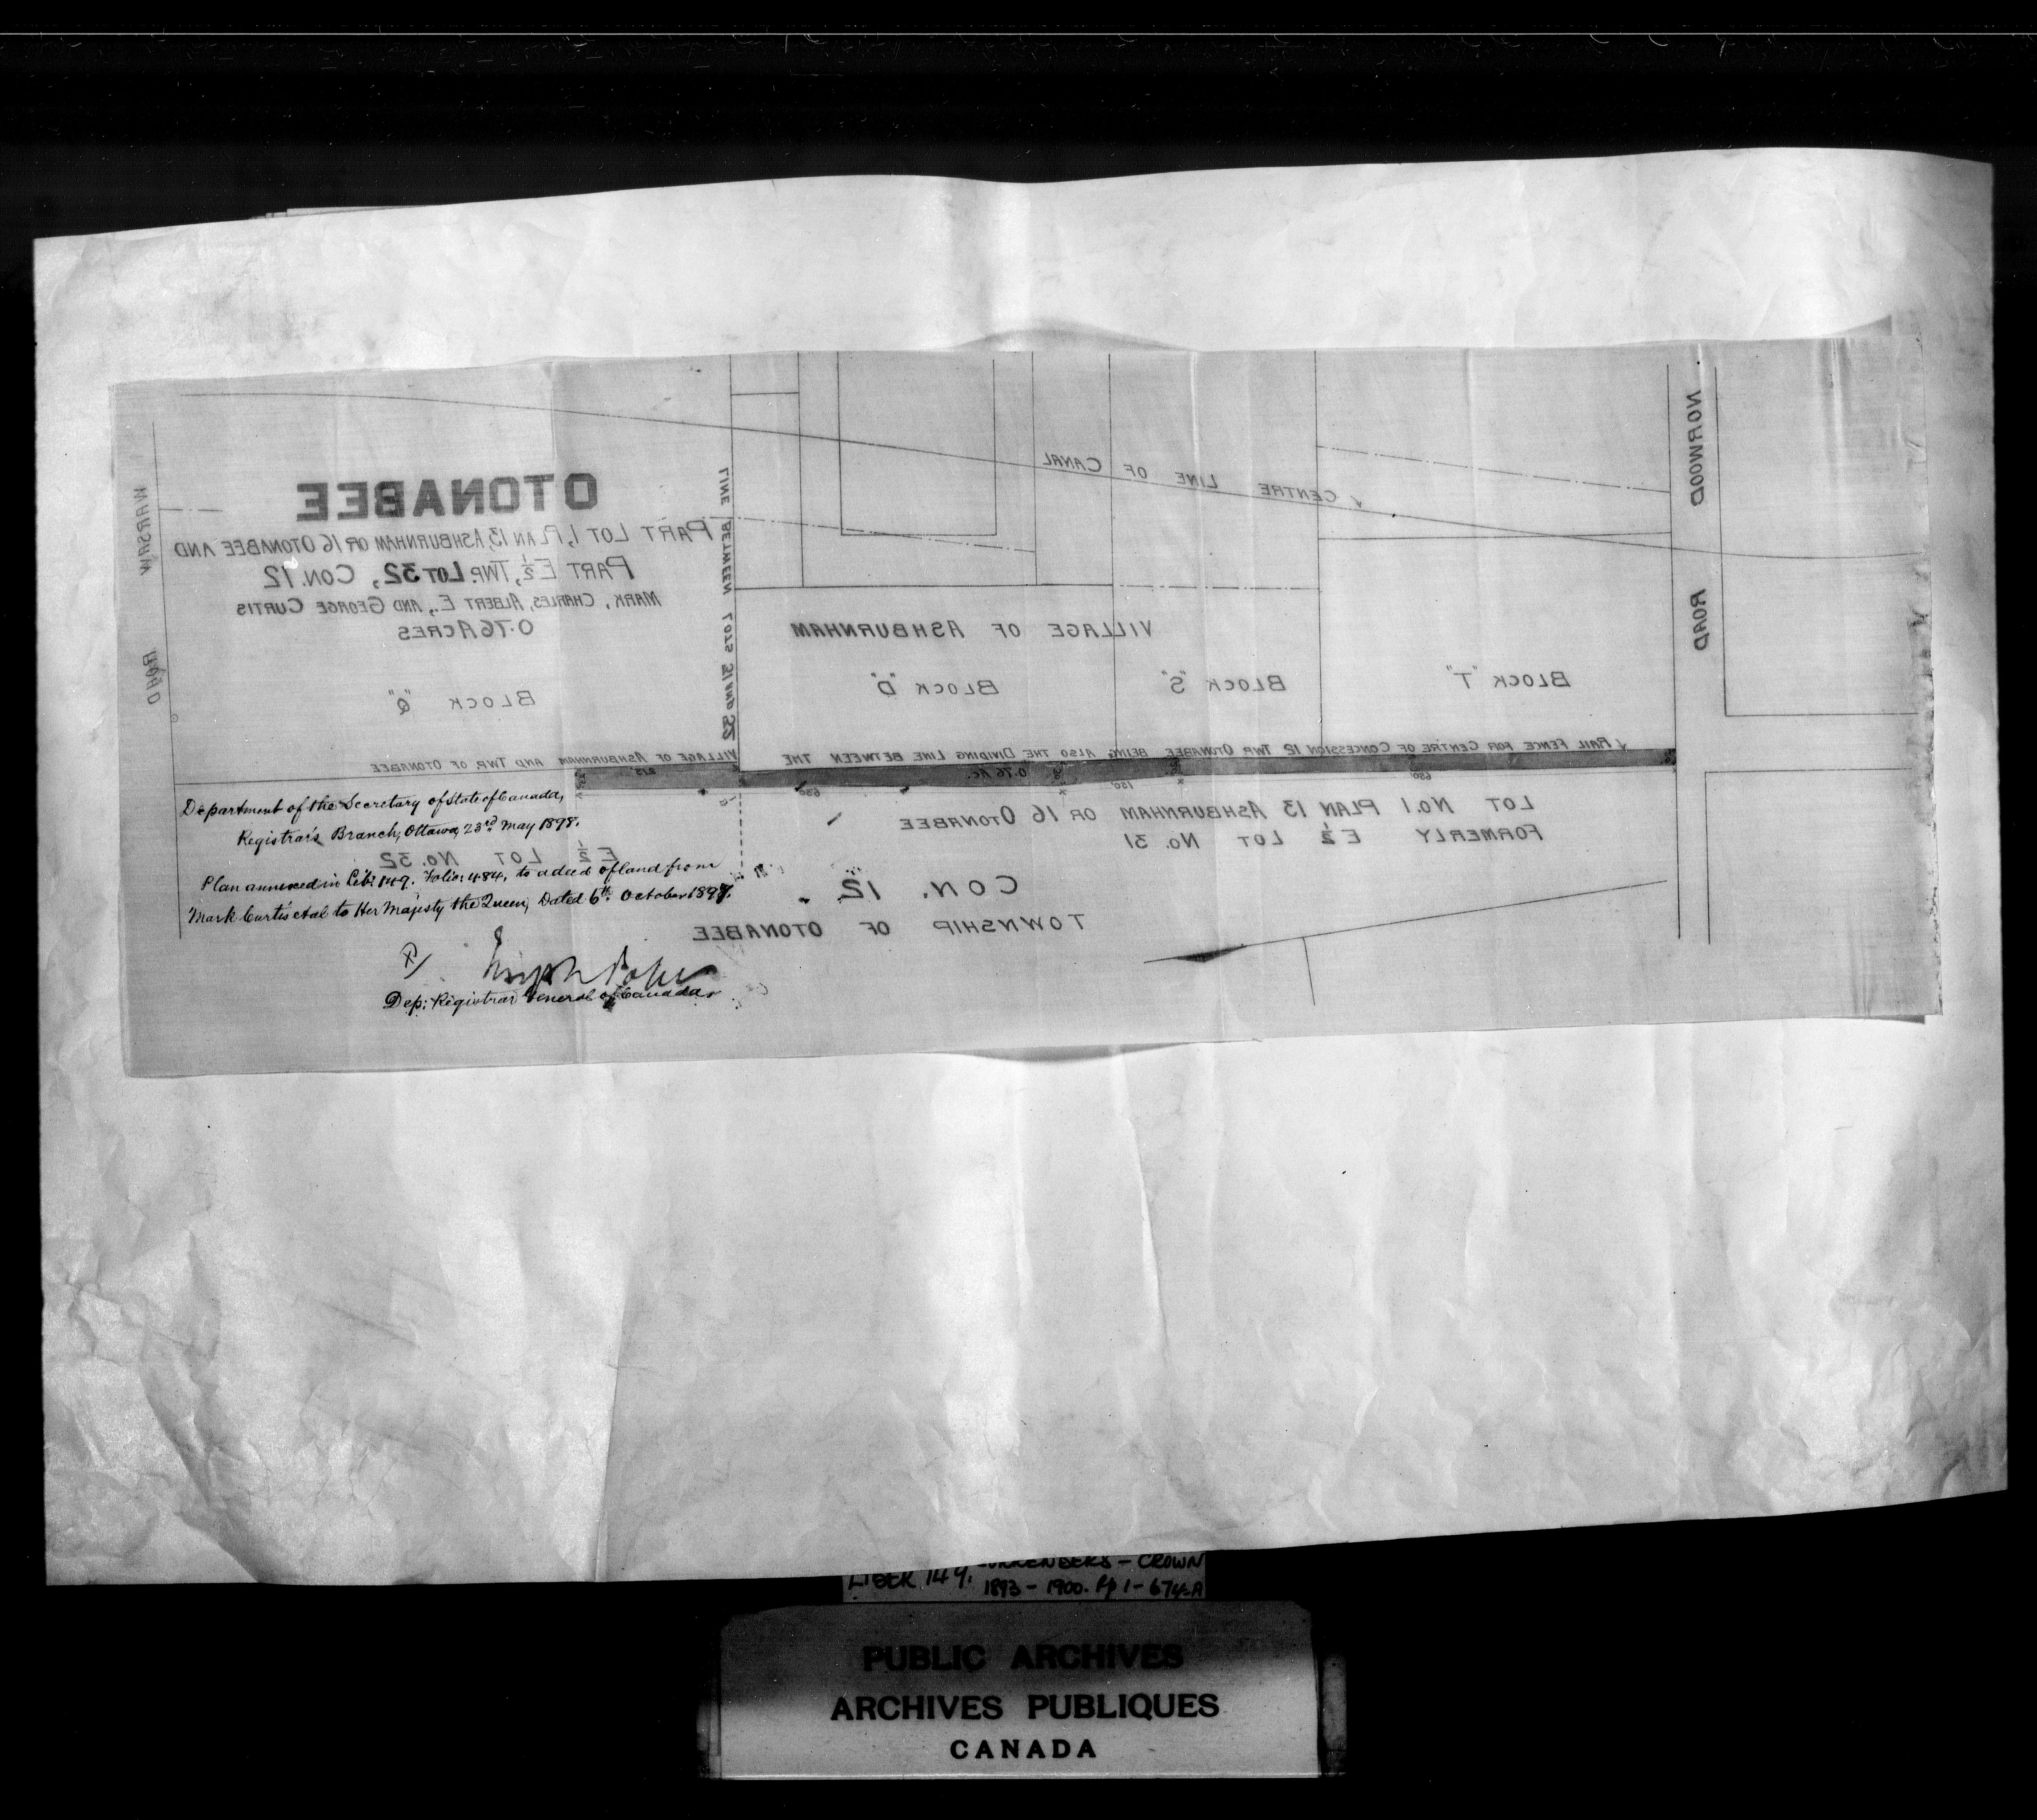 OTONABEE
PART LOT 1, PLAN 13, ASHBURNHAM OR 16 OTONABEE AND
PART E½, TWP. LOT 32, CON. 12
MARK, CHARLES, ALBERT E., AND GEORGE CURTIS
0.76 ACRES
WARSAW ROAD
LINE BETWEEN LOTS 31 AND 32
CENTRE LINE OF CANAL
NORWOOD ROAD
VILLAGE OF ASHBURNHAM
BLOCK "T"
BLOCK "S"
BLOCK "D"
BLOCK "Q"
RAIL FENCE FOR CENTRE OF CONCESSION 12 TWP. OTONABEE BEING ALSO THE DIVIDING LINE BETWEEN THE VILLAGE OF ASHBURNHAM AND TWP. OF OTONABEE
0.76 Ac.
LOT No. 1 PLAN 13 ASHBURNHAM OR 16 OTONABEE
FORMERLY E½ LOT No. 31
E½ LOT No. 32
CON. 12
TOWNSHIP OF OTONABEE
Department of the Secretary of State of Canada,
Registrar's Branch, Ottawa, 23rd May 1898.
Plan annexed in Lib: 149. Folio: 484, to a deed of land from
Mark Curtis et al to Her Majesty the Queen, Dated 6th October 1897.
Joseph Pope
Dep: Registrar General of Canada
LIBER 149. SURRENDERS - CROWN
1893 - 1900. Pp 1 - 674-A
PUBLIC ARCHIVES
ARCHIVES PUBLIQUES
CANADA